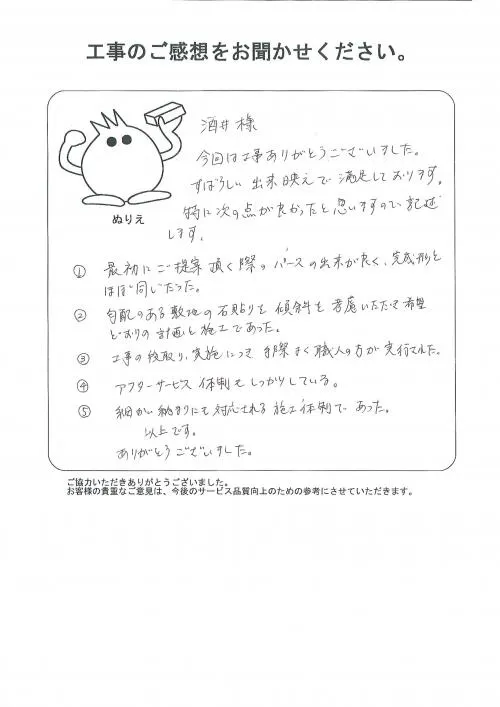 工事のご感想をお聞かせください。
ぬりえ
酒井様
今回は工事ありがとうございました。
すばらしい出来映えで満足しております。
特に次の点が良かったと思いますので記述
します。
① 最初にご提案頂く際のパースの出来が良く、完成形と
ほぼ同じだった。
② 勾配のある敷地の石貼りを傾斜を考慮いただき希望
どおりの計画し施工であった。
③ 工事の段取り、実施につき手際よく職人の方が実行された。
④ アフターサービス体制もしっかりしている。
⑤ 細かい納まりにも対応される施工体制であった。
以上です。
ありがとうございました。
ご協力いただきありがとうございました。
お客様の貴重なご意見は、今後のサービス品質向上のための参考にさせていただきます。